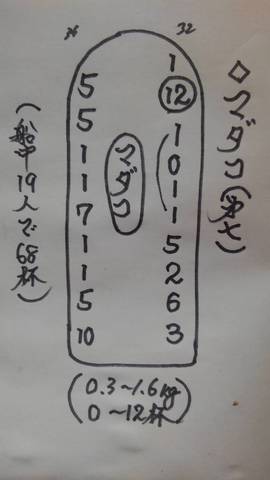 ◇マダコ(第七)
32
1
12
1
0
1
1
5
2
6
3
マダコ
36
5
5
1
1
7
1
1
5
10
(船中19人で68杯)
(0.3~1.6kg
0~12杯)